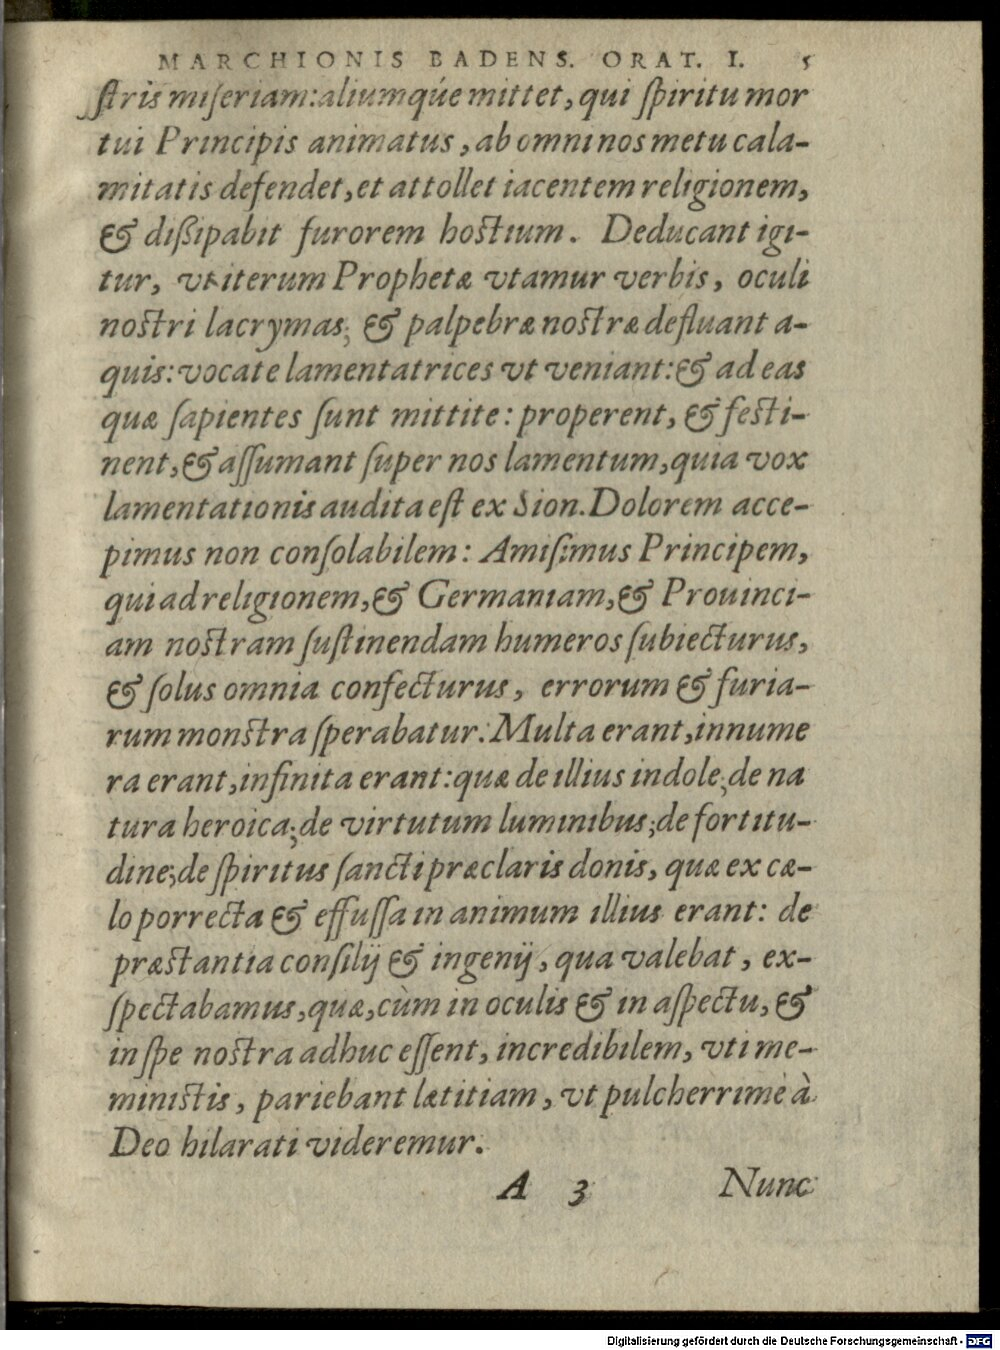 MARCHIONIS BADENS. ORAT. I. 5
ſtris miſeriam: aliumqúe mittet, qui ſpiritu mor
tui Principis animatus, ab omni nos metu cala-
mitatis defendet, et attollet iacentem religionem,
& dißipabit furorem hostium. Deducant igi-
tur, vt iterum Prophetæ vtamur verbis, oculi
nostri lacrymas; & palpebræ nostræ defluant a-
quis: vocate lamentatrices vt veniant: & ad eas
quæ ſapientes ſunt mittite: properent, & festi-
nent, & aſſumant ſuper nos lamentum, quia vox
lamentationis audita eſt ex Sion. Dolorem acce-
pimus non conſolabilem: Amiſimus Principem,
qui ad religionem, & Germaniam, & Prouinci-
am nostram ſuſtinendam humeros ſubiecturus,
& ſolus omnia confecturus, errorum & furia-
rum monstra ſperabatur. Multa erant, innume
ra erant, infinita erant: quæ de illius indole; de na
tura heroica; de virtutum luminibus; de fortitu-
dine; de ſpiritus ſancti præclaris donis, quæ ex cæ-
lo porrecta & effuſſa in animum illius erant: de
præstantia conſilij & ingenij, qua valebat, ex-
ſpectabamus, quæ, cùm in oculis & in aſpectu, &
in ſpe nostra adhuc eſſent, incredibilem, vti me-
ministis, pariebant lætitiam, vt pulcherrimè à
Deo hilarati videremur.
A 3 Nunc
Digitalisierung gefördert durch die Deutsche Forschungsgemeinschaft - DFG